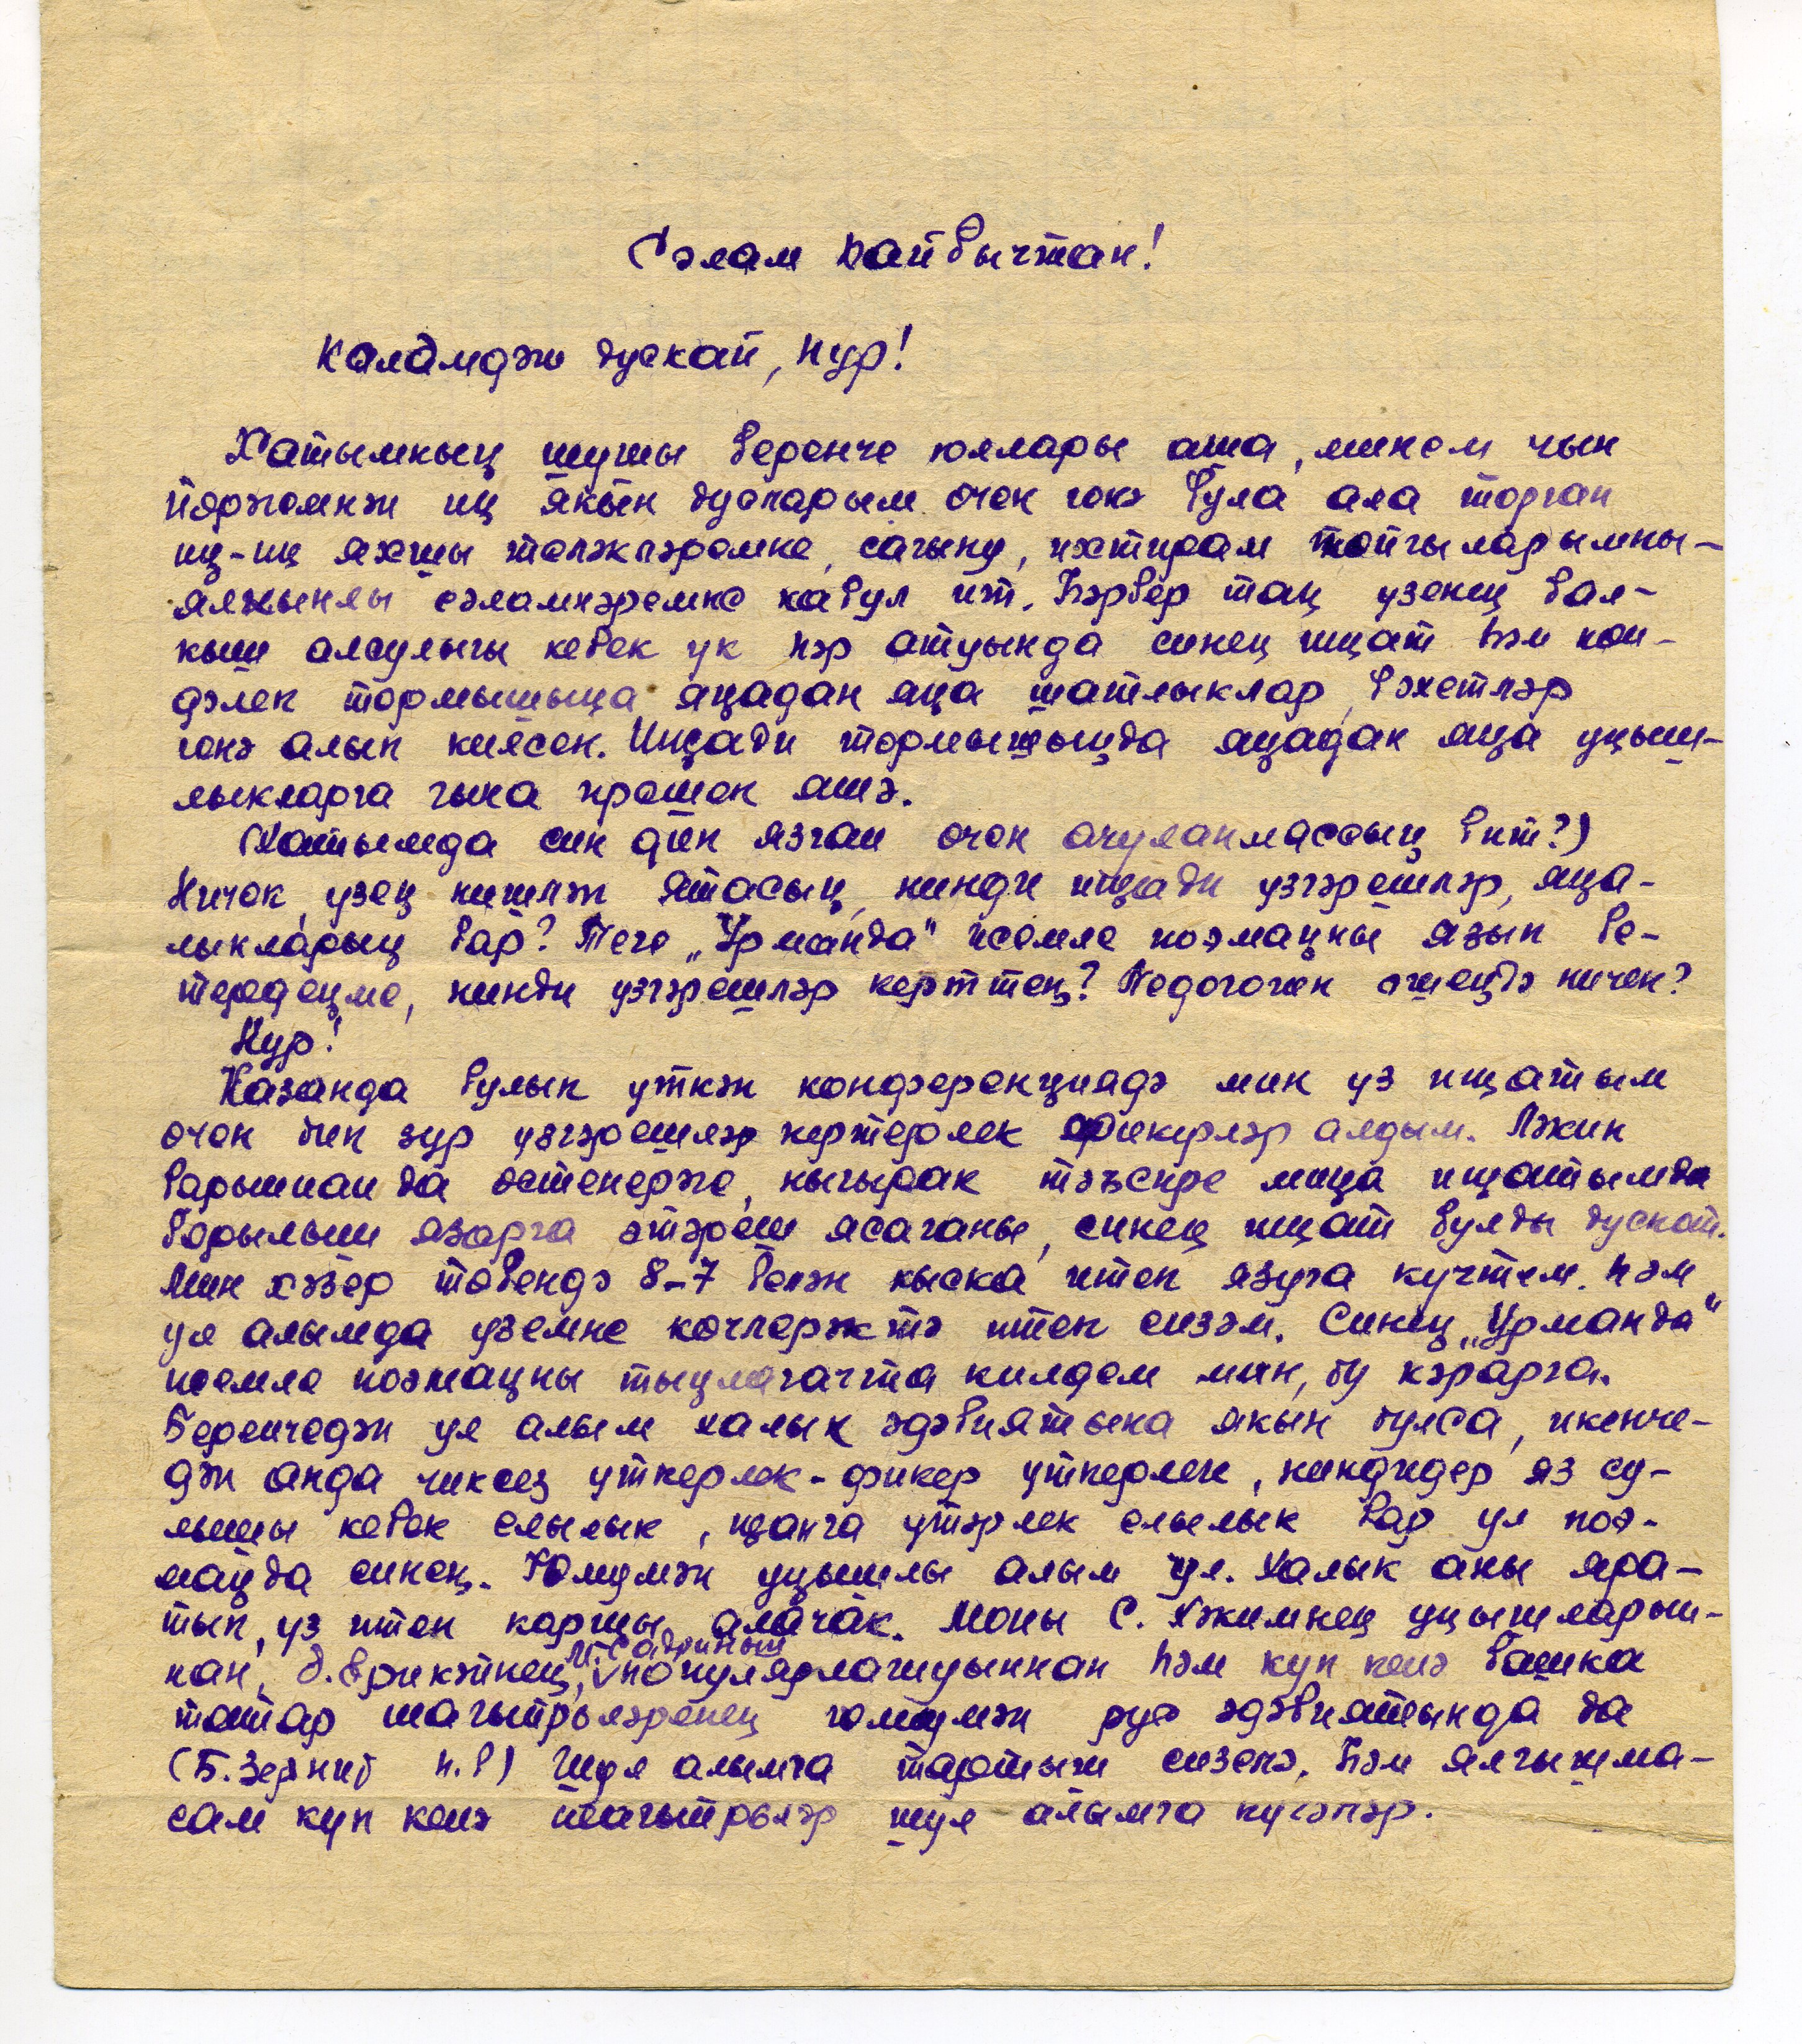 Сәлам Байбычтан!
Каләмдәш дускай, Нур!
Хатымның шушы беренче юллары аша, минем чын
йөрәгемнән иң якын дусларым өчен генә була ала торган
иң-иң яхшы теләкләремне, сагыну, ихтирам тойгыларымны-
ялкынлы сәламнәремне кабул ит. Һәрбер таң үзенең бал-
кыш алсулыгы кебек үк һәр атуында синең иҗат һәм көн-
дәлек тормышыңа яңадан яңа шатлыклар, бәхетләр
генә алып килсен. Иҗади тормышыңда яңадан яңа уңыш-
лыкларга гына ирешеп яшә.
(Хатымда син дип язган өчен ачуланмассың бит?)
Ничек, үзең нишләп ятасың, нинди иҗади үзгәрешләр, яңа-
лыкларың бар? Теге „Урманда" исемле поэмаңны язып бе-
тердеңме, нинди үзгәрешләр керттең? Педогогик эшеңдә ничек?
Нур!
Казанда булып үткән конференциядә мин үз иҗатым
өчен бик зур үзгәрешләр кертерлек фикерләр алдым. Ләкин
барыннан да өстенерәге, ныгырак тәэсире миңа иҗатымда
борылыш ясарга этәреш ясаганы, синең иҗат булды дускай.
Мин хәзер төбендә 8-7 белән кыска итеп язуга күчтем. Һәм
ул алымда үземне көчлерәк тә итеп сизәм. Синең „Урманда"
исемле поэмаңны тыңлагачта килдем мин, бу карарга.
Беренчедән ул алым халык әдәбиятына якын булса, икенче-
дән анда чиксез үткерлек-фикер үткерлеге, ниндидер яз су-
лышы кебек җылылык, җанга үтәрлек җылылык бар ул поэ-
маңда синең. Гомумән уңышлы алым ул. Халык аны яра-
тып, үз итеп каршы алачак. Моны С. Хәкимнең уңышларын-
нан, Ә. Ерикәйнең, М. Садриның популярлашуыннан һәм күп кенә башка
татар шагыйрьләренең гомумән рус әдәбиятында да
(Б. Зернит һ.б) шул алымга тартыш сизелә. Һәм ялгышма-
сам күп кенә шагыйрьләр шул алымга күчәләр.